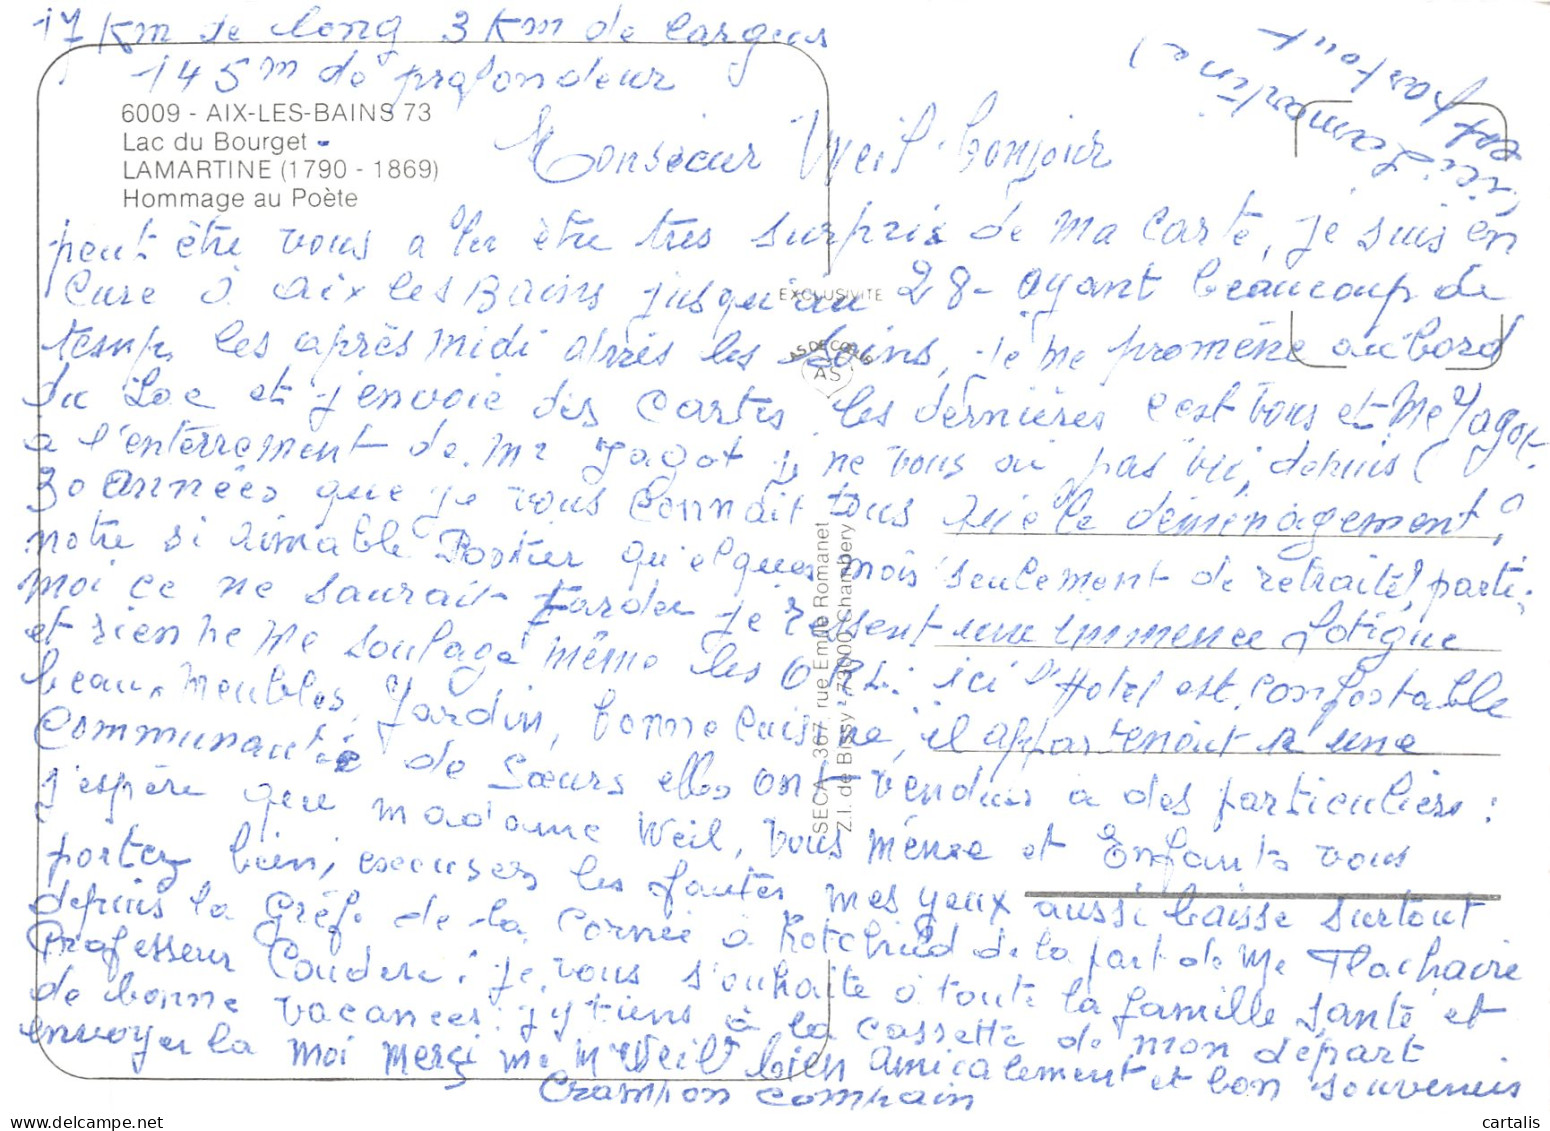 17 Km de long 3 Km de largeur
145m de profondeur
ici Lamartine
est partout
6009 - AIX-LES-BAINS 73
Lac du Bourget -
LAMARTINE (1790 - 1869)
Hommage au Poète
Monsieur Weil bonjour
peut être vous aller être très surpris de ma carte, je suis en
cure à aix les Bains jusqu'au 28 - ayant beaucoup de
temps les après midi après les soins, je me promène au bord
du Lac et j'envoie des cartes les dernières c'est vous et Me Jagot
a l'enterrement de Mr Jagot je ne vous ai pas vu, depuis (
30 Années que je vous connait tous le déménagement ?
notre si aimable Postier quelques mois seulement de retraite parti,
moi ce ne saurait tarder je ressent une immence fatigue
et rien ne me soulage même les O.R.L. : ici l'Hotel est confortable
beaux Meubles, Jardin, bonne cuisine, il appartenait a une
Communauté de Sœurs elles ont vendus a des particuliers :
j'espère que madame Weil, vous même et Enfants vous
portez bien, excuser les fautes mes yeux aussi baisse surtout
depuis la Gréfe de la cornée à Rotchild de la part de Me Flachaire
Professeur Couderc : je vous s'ouhaite à toute la famille santé et
de bonne vacances : j'y tiens à la cassette de mon départ
envoyer la moi merçi me Mr Weil bien amicalement et bon souvenirs
Crampon compain
EXCLUSIVITE
AS DE COEUR
AS
SECA 367, rue Emile Romanet
Z.I. de Bissy - 73000 Chambéry
cartalis.com